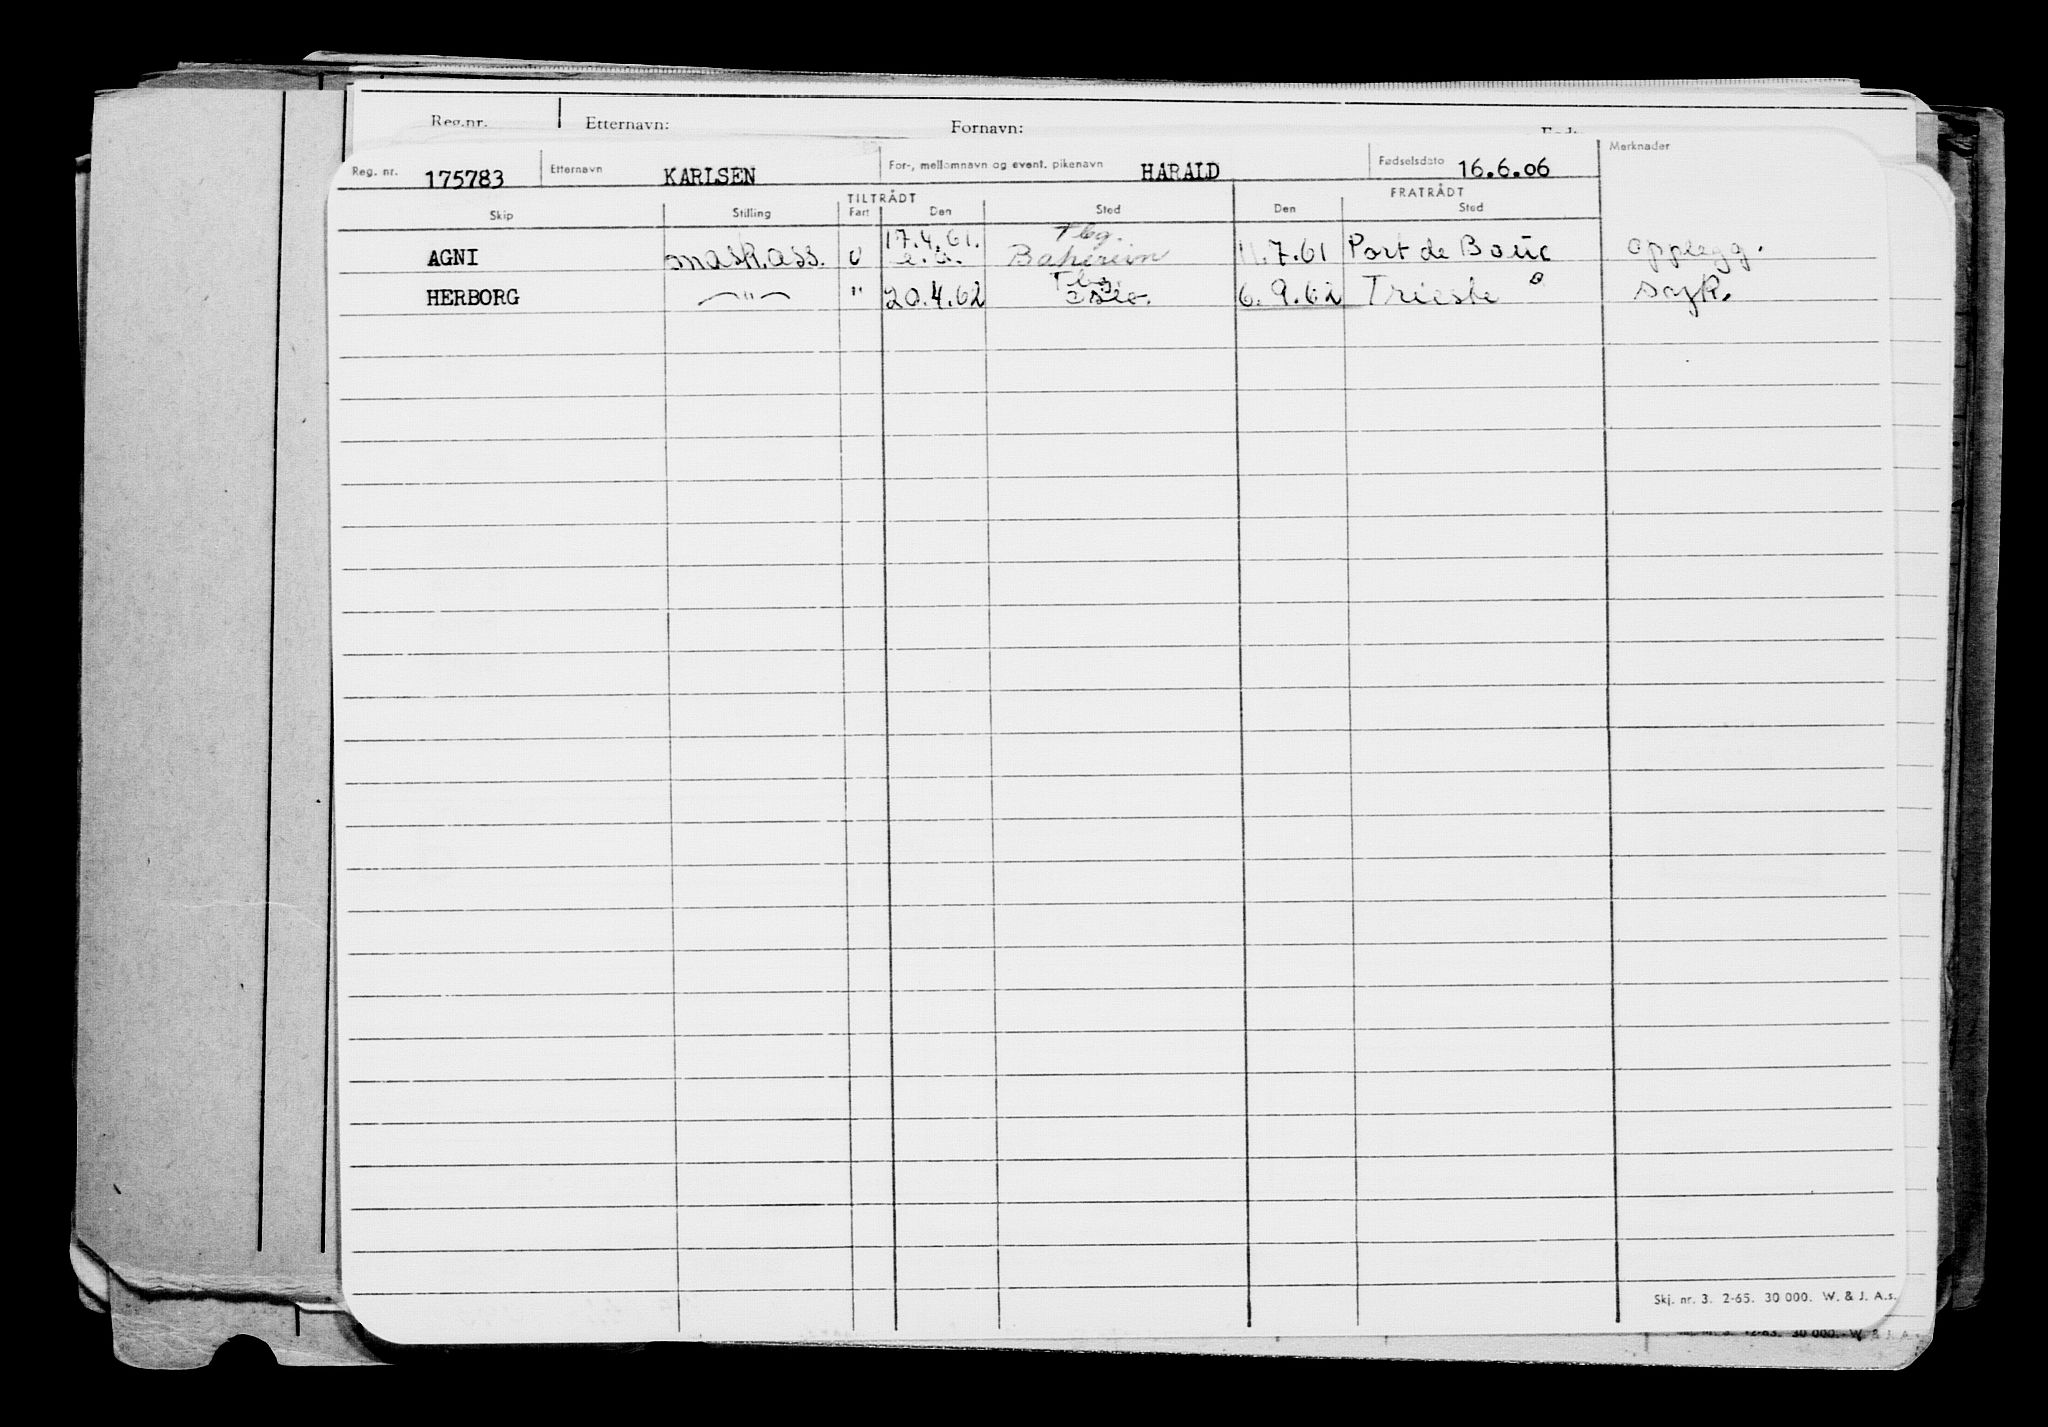 Reg.nr. Etternavn: Fornavn:
Reg. nr. 175783 Etternavn KARLSEN For-, mellomnavn og event. pikenavn HARALD Fødselsdato 16.6.06 Merknader
TILTRÅDT FRATRÅDT
Skip Stilling Fart Den Sted Den Sted
17.4.61. Tbg.
AGNI mask.ass. u e.a. Baherein 11.7.61 Port de Bouc opplegg.
Tbg.
HERBORG —"— " 20.4.62 Oslo. 6.9.62 Trieste sajk.
Skj. nr. 3. 2-65. 30 000. W. & J. A.s.
12-63. 30 000.- W. & J. A.